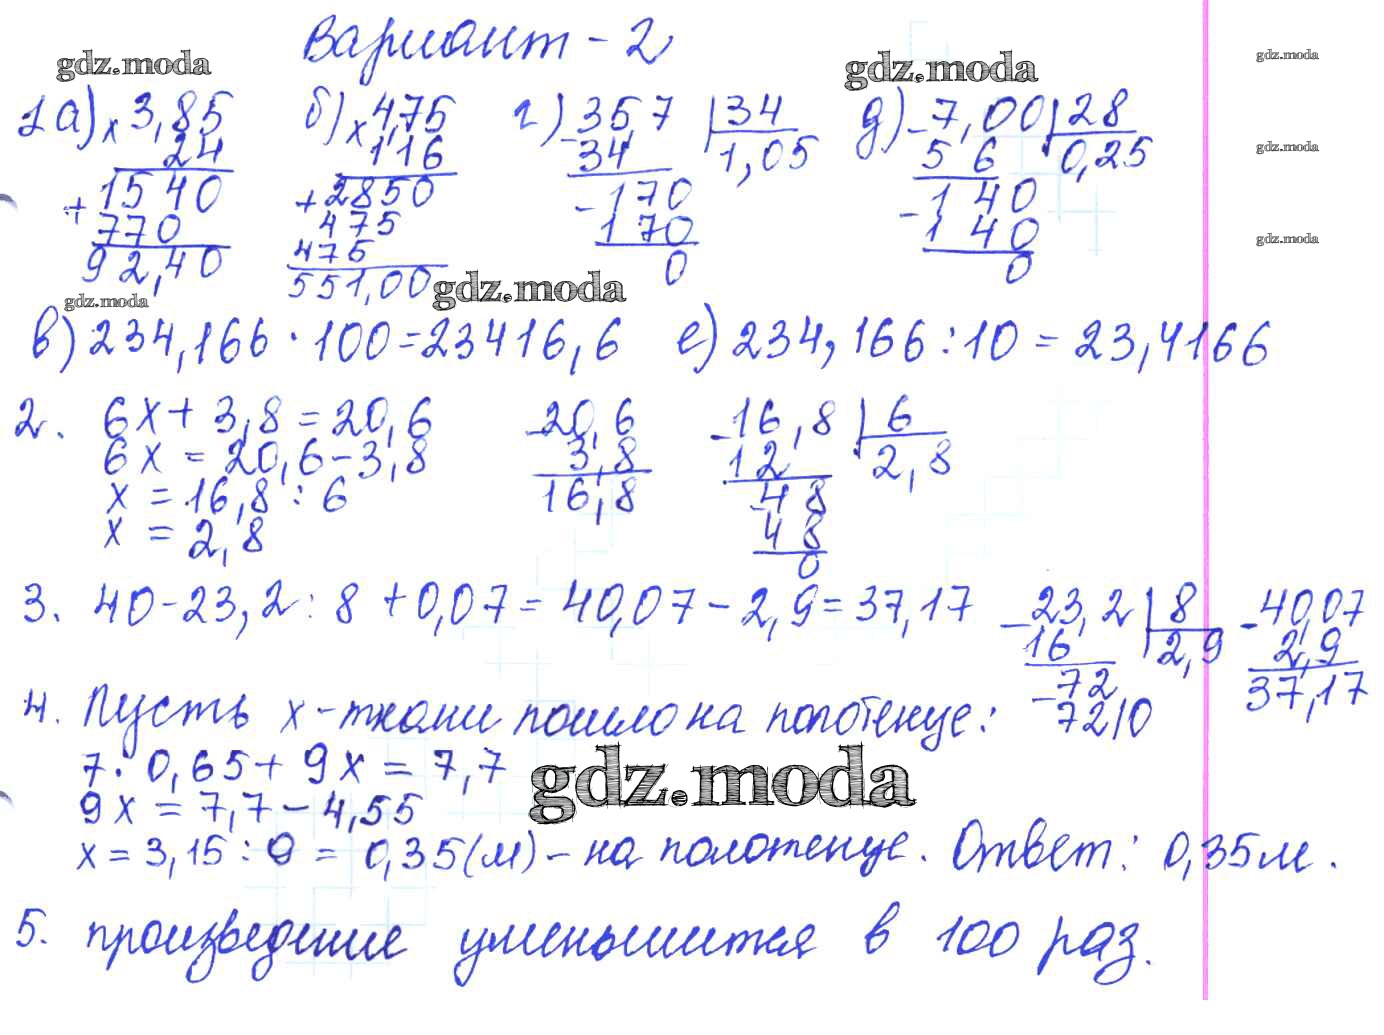 Вариант - 2
gdz.moda gdz.moda gdz.moda
1 а) × 3,85 б) × 475 г) - 35,7 | 34 д) - 7,00 | 28
24 1,16 34 1,05 5 6 0,25
gdz.moda
+ 1540 + 2850 - 170 - 140
770 475 170 140
gdz.moda
92,40 475 0 0
551,00 gdz.moda
gdz.moda
в) 234,166 · 100 = 23416,6 е) 234,166 : 10 = 23,4166
2. 6x + 3,8 = 20,6 - 20,6 - 16,8 | 6
6x = 20,6 - 3,8 3,8 12 2,8
x = 16,8 : 6 16,8 - 48
x = 2,8 48
0
3. 40 - 23,2 : 8 + 0,07 = 40,07 - 2,9 = 37,17 - 23,2 | 8 - 40,07
16 2,9 2,9
- 72 37,17
72 | 0
4. Пусть x - ткани пошло на полотенце:
7 · 0,65 + 9x = 7,7
gdz.moda
9x = 7,7 - 4,55
x = 3,15 : 9 = 0,35 (м) - на полотенце. Ответ: 0,35 м.
5. произведение уменьшится в 100 раз.